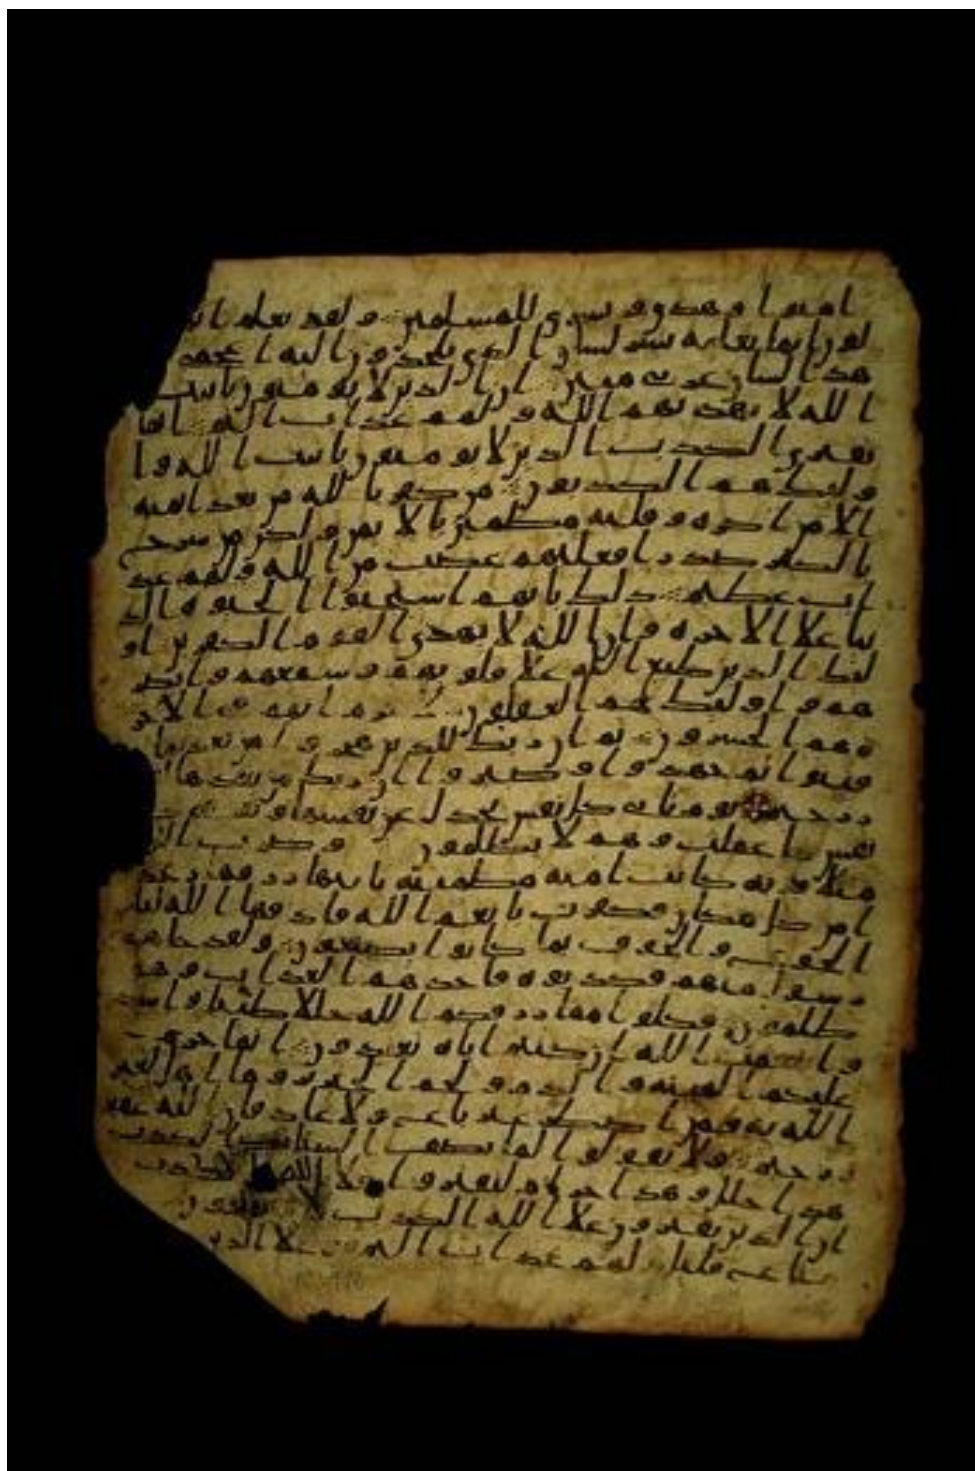 امنوا وهدى وبشرى للمسلمين ولقد نعلم
لون انما يعلمه بشر لسان الذي يلحدون اليه اعجمي
هذا لسان عربي مبين ان الذين لا يومنون بايت
الله لا يهديهم الله ولهم عذاب اليم انما
يفتري الكذب الذين لا يومنون بايت الله وا
ولئك هم الكذبون من كفر بالله من بعد ايمنه
الا من اكره وقلبه مطمئن بالايمن ولكن من شرح
بالكفر صدرا فعليهم غضب من الله ولهم عذ
اب عظيم ذلك بانهم استحبوا الحيوة الد
نيا علا الاخرة وان الله لا يهدي القوم الكفرين او
لئك الذين طبع الله علا قلوبهم وسمعهم وابصر
هم واولئك هم الغفلون لا جرم انهم في الاخر
ة هم الخسرون ثم ان ربك للذين هجروا من بعد ما
فتنوا ثم جهدوا وصبروا ان ربك من بعدها
رحيم يوم تاتي كل نفس تجدل عن نفسها وتوفى
نفس ما عملت وهم لا يظلمون وضرب الله
مثلا قرية كانت امنة مطمئنة ياتيها رزقها رغد
ا من كل مكان فكفرت بانعم الله فاذقها الله لباس
الجوع والخوف بما كانوا يصنعون ولقد جاهم
رسول منهم فكذبوه فاخذهم العذاب وهم
ظلمون فكلوا مما رزقكم الله حللا طيبا واشكر
وا نعمت الله ان كنتم اياه تعبدون انما حرم
عليكم الميتة والدم ولحم الخنزير وما اهل لغير
الله به فمن اضطر غير باغ ولا عاد فان الله غفور
رحيم ولا تقولوا لما تصف السنتكم الكذب
هذا حلل وهذا حرم لتفتروا علا الله الكذب
ان الذين يفترون علا الله الكذب لا يفلحون
متاع قليل ولهم عذاب اليم وعلا الذين